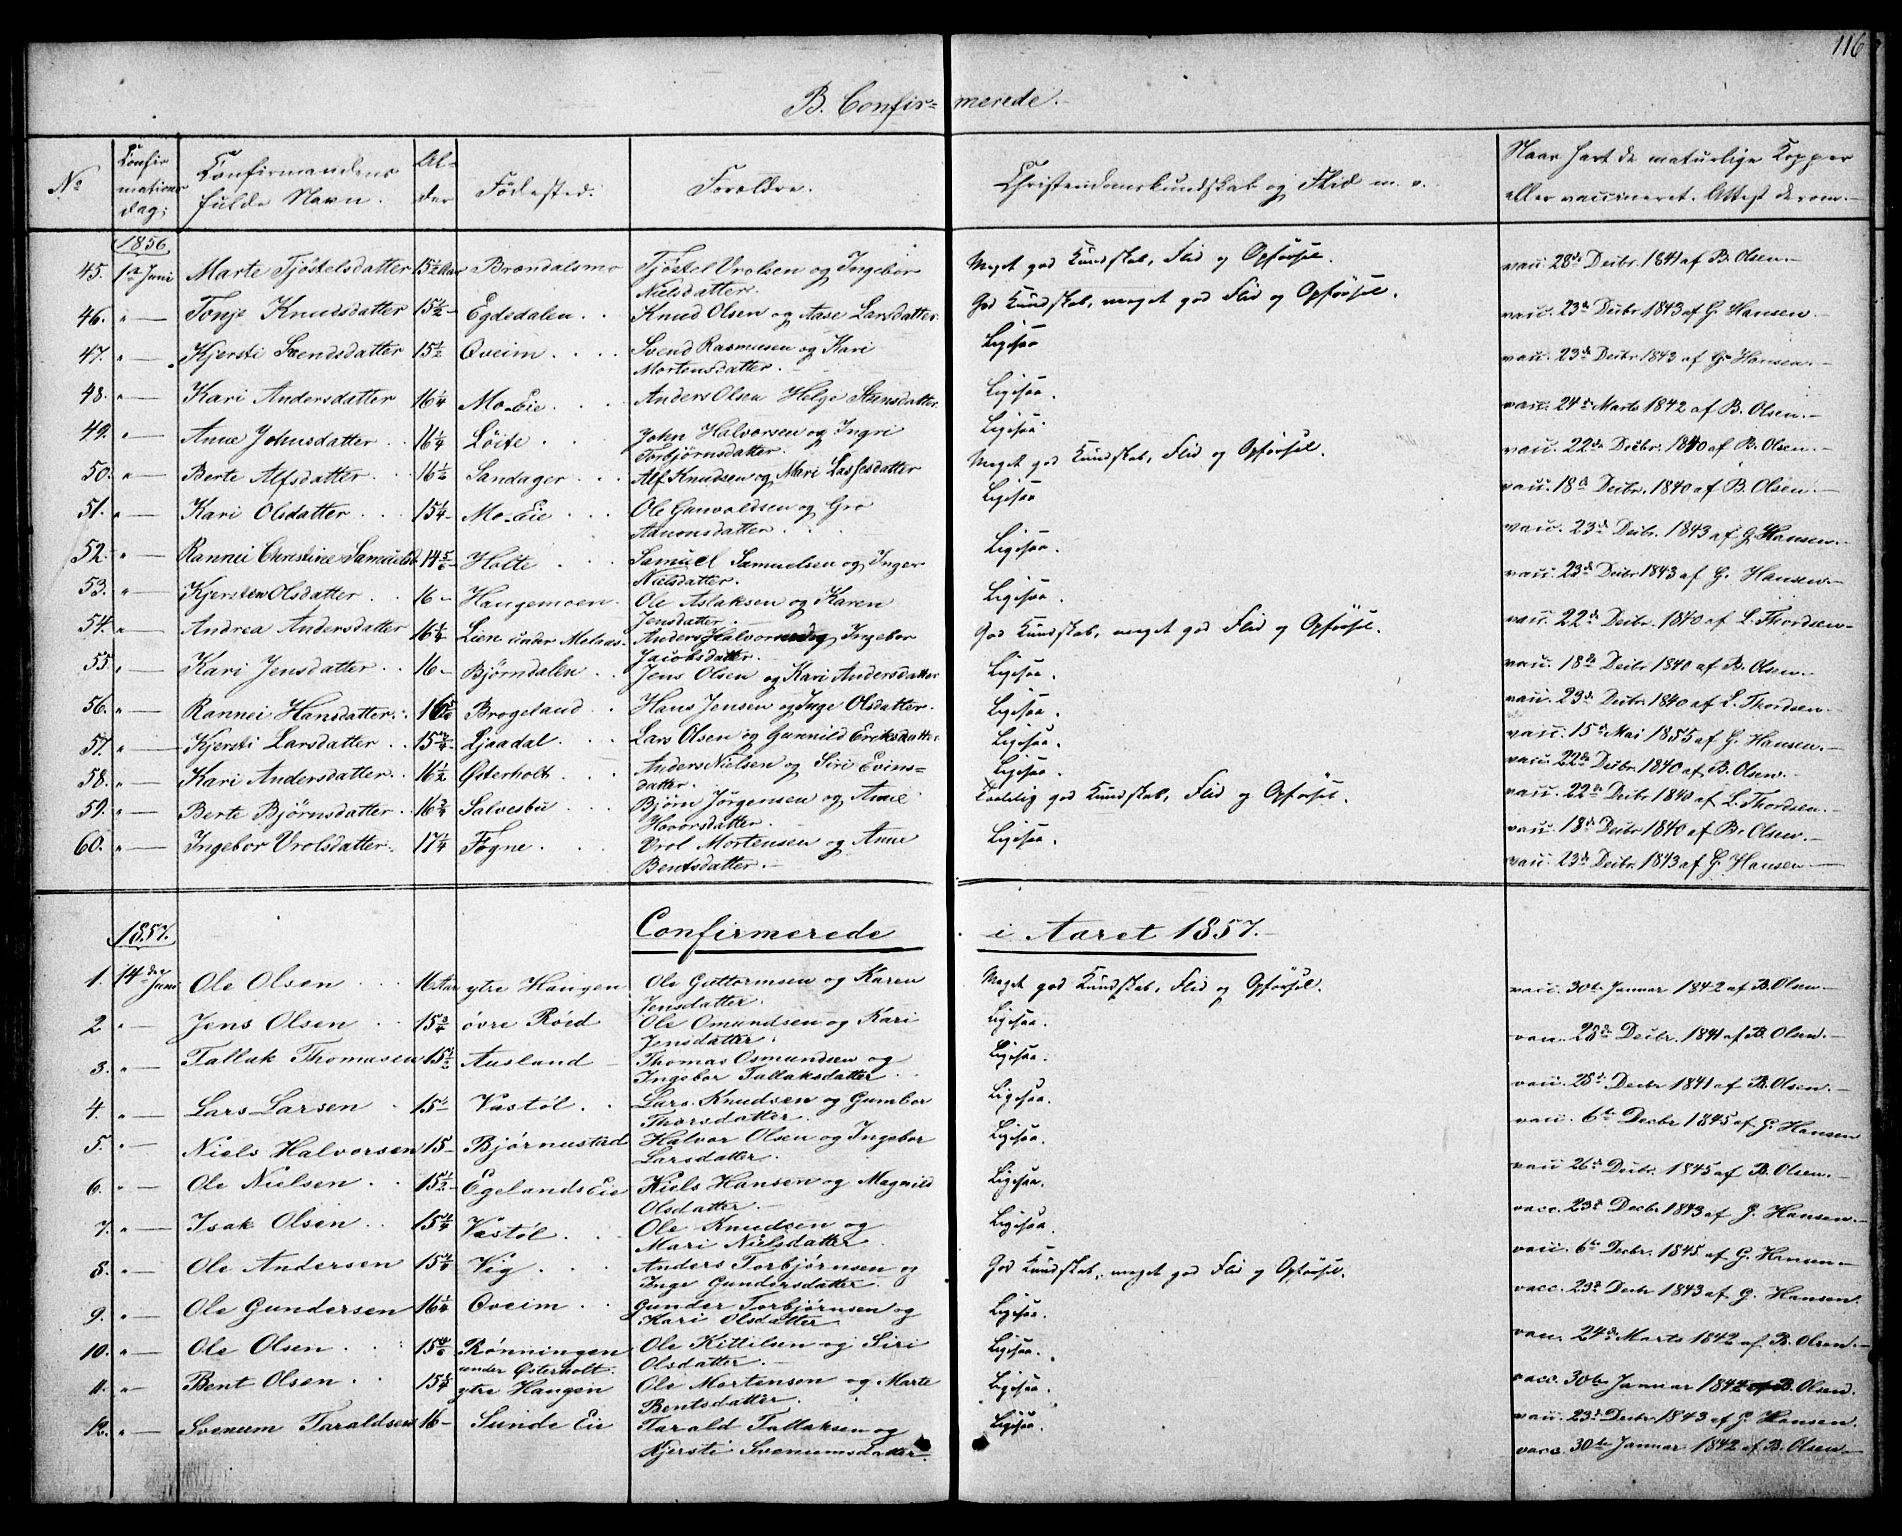 116
B. Confir= merede.
No
Confirmations dag;
Confirmandens fulde Navn.
Alder
Födested.
Forældre.
Christendomskundskab og Flid m. v.
Naar havt de naturlige Kopper eller vaccineret. Attest derom.
1856
45. 1ste Juni Marte Tjöstelsdatter 15½ Aar Brændalsmo Tjöstel Vrolsen og Ingebor Nielsdatter. Meget god Kundskab, Flid og Opförsel. vacc. 28de Decbr. 1841 af B. Olsen.
46. " Tonje Knudsdatter 15½ Egdedalen Knud Olsen og Aase Larsdatter. God Kundskab, meget god Flid og Opförsel. vacc. 23de Decbr 1843 af G. Hansen.
47. " Kjersti Svendsdatter 15½ Oveim Svend Rasmusen og Kari Mortensdatter. Ligesaa vacc. 23de Decbr 1843 af G. Hansen.
48. " Kari Andersdatter 16¼ Mo-Eie Anders Olsen Helge Steensdatter. Ligesaa. vacc. 24de Marts 1842 af B. Olsen.
49. " Anne Johnsdatter 16¼ Löite John Halvorsen og Ingri Torbjörnsdatter. Ligesaa. vacc. 22de Decbr. 1840 af B. Olsen.
50. " Berte Alfsdatter 16½ Sandager Alf Knudsen og Mari Lassesdatter Meget god Kundskab, Flid og Opförsel. vacc. 18de Decbr. 1840 af B. Olsen.
51. " Kari Olsdatter 15¼ Mo-Eie Ole Gunvoldsen og Gro Aanonsdatter. Ligesaa vacc. 23de Decbr. 1843 af G. Hansen.
52. " Rannei Christine Samuelsd. 14 5/6 Holte Samuel Samuelsen og Inger Nielsdatter. Ligesaa. vacc. 23de Decbr 1843 af G. Hansen.
53. " Kjersten Olsdatter 16 Haugemoen Ole Aslaksen og Karen Jensdatter. Ligesaa. vacc. 22de Decbr. 1840 af L. Thordsen.
54. " Andrea Andersdatter 16¼ Lien under Molans Anders Halvorsen og Ingebor Jacobsdatter. God Kundskab, meget god Flid og Opförsel. vacc. 18de Decbr 1840 af B. Olsen.
55. " Kari Jensdatter 16 Bjørndalen Jens Olsen og Kari Andersdatter Ligesaa. vacc. 23de Decbr. 1840 af L. Thordsen.
56. " Rannei Hansdatter. 16 5/6 Brogeland Hans Jensen og Inge Olsdatter. Ligesaa. vacc. 15de Mai 1855 af G. Hansen.
57. " Kjersti Larsdatter 15¾ Ljaadal Lars Olsen og Gunnild Eriksdatter. Ligesaa. vacc. 22de Decbr. 1840 af B. Olsen
58. " Kari Andersdatter 16½ Østerholt Anders Nielsen og Siri Evins= datter. Ligesaa. vacc. 22de Decbr 1840 af L. Thordsen.
59. " Berte Bjørnsdatter 16¾ Salvesbu Bjørn Jørgensen og Anne Hovorsdatter. Temelig god Kundskab, Flid og Opförsel. vacc. 18de Decbr 1840 af B. Olsen.
60. " Ingebor Vrolsdatter 17¼ Fogne Vrol Mortensen og Anne Bentsdatter. Ligesaa. vacc. 23de Decbr 1843 af G. Hansen
1857. Confirmerede i Aaret 1857.
1. 14de Juni Ole Olsen 16 Aar ytre Haugen Ole Guttormsen og Karen Jensdatter. Meget god Kundskab, Flid og Opförsel. vacc. 30te Januar 1842 af B. Olsen
2 " Jens Olsen 15¾ övre Röed Ole Omundsen og Kari Jensdatter. Ligesaa. vacc. 28de Decbr. 1841 af B. Olsen.
3. " Tallak Thomasen 15½ Ausland Thomas Osmundsen og Ingebor Tallaksdatter. Ligesaa. vacc. 28de Decbr 1841 af B. Olsen.
4. " Lars Larsen 15 Vastöl Lars Knudsen og Gumbor Thorsdatter. Ligesaa. vacc. 6te Decbr 1845 af G. Hansen
5. " Niels Halvorsen 15 Bjørnustad Halvor Olsen og Ingebor Larsdatter. Ligesaa. vacc 26de Decbr. 1845 af B. Olsen.
6. " Ole Nielsen 15½ Egelands Eie Niels Hansen og Magnild Olsdatter. Ligesaa. vacc. 23de Decbr 1843 af G. Hansen.
7. " Isak Olsen 15¾ Vastöl Ole Knudsen og Mari Nielsdatter Ligesaa. vacc. 6te Decbr. 1845. af G. Hansen.
8. " Ole Andersen Vig Anders Torbjørnsen og Inge Gundersdatter. God Kundskab, meget god Flid og Opförsel. vacc. 23de Decbr 1843 af G. Hansen.
9. " Ole Gundersen 16¼ Oveim Gunder Torbjørnsen og Kari Olsdatter. Ligesaa. vacc. 24de Marts 1842 af B. Olsen.
10. " Ole Olsen Rønningen under Østerholt. Ole Kittilsen og Siri Olsdatter. Ligesaa. vacc. 30te Januar 1842 af B. Olsen.
11. " Bent Olsen ytre Haugen Ole Mortensen og Marte Bentsdatter. Ligesaa. vacc. 23de Decbr 1843 af G. Hansen.
12. " Svenum Taraldsen 16 Sunde Eie Tarald Tallaksen og Kjersti Svenumsdatter. Ligesaa. vacc. 30te Januar 1842 af B. Olsen.